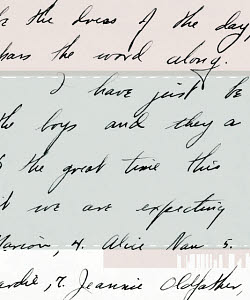 the dress of the day
the word along.
I have just be
the boys and they a
the great time this
we are expecting
Marion, 4. Alice Nan 5.
7. Jeannie